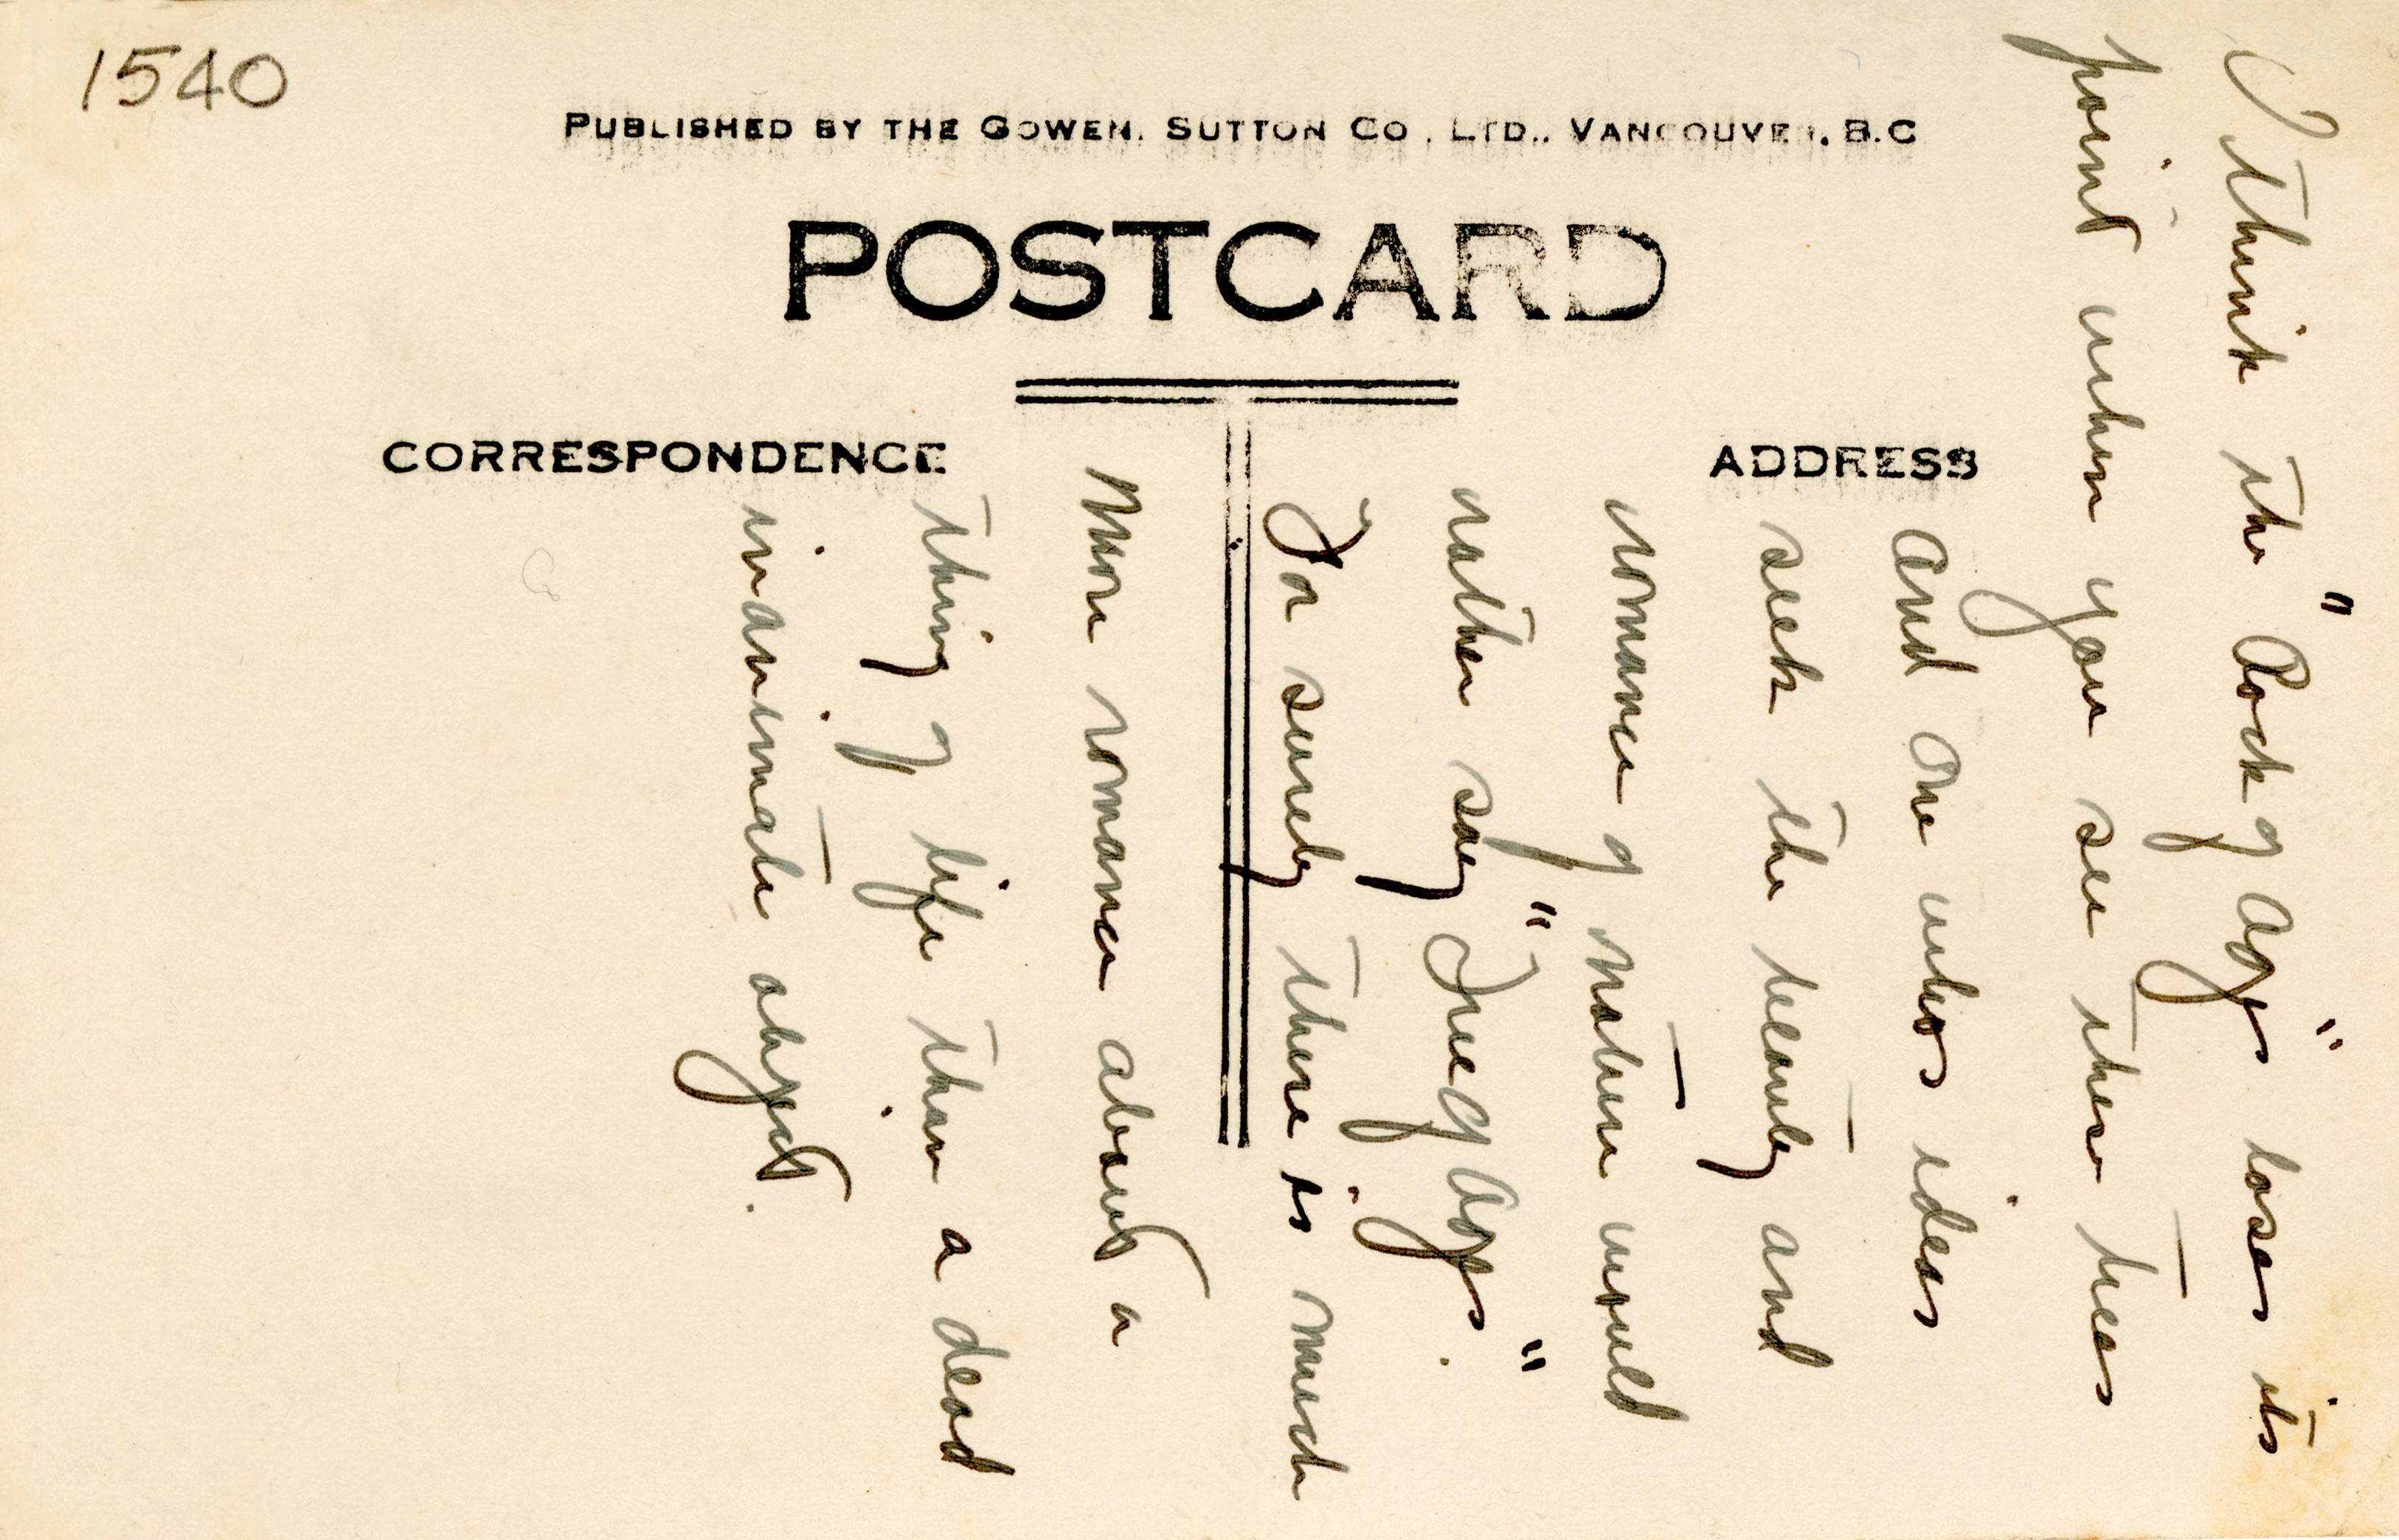 1540
PUBLISHED BY THE GOWEN, SUTTON CO., LTD., VANCOUVER, B.C
POSTCARD
CORRESPONDENCE
ADDRESS
I think the "Rock of Ages" loses its
point when you see these trees
and one whos ideas
seek the beauty and
romance of nature would
rather say "Tree of Ages."
For surely there is much
more romance about a
thing of life than a dead
inanimate object.